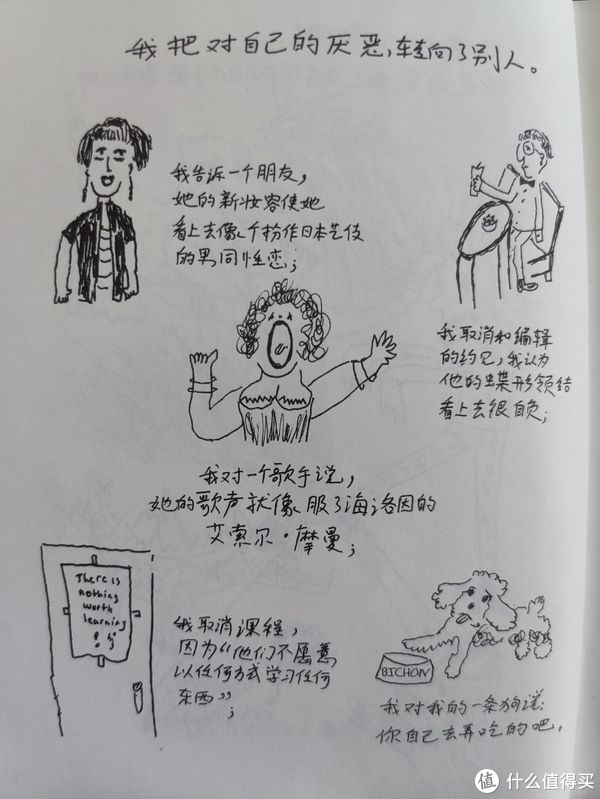 我把对自己的厌恶,转向了别人。
我告诉一个朋友,
她的新妆容使她
看上去像个扮作日本艺伎
的男同性恋;
我取消和编辑
的约见,我认为
他的蝶形领结
看上去很自负;
我对一个歌手说,
她的歌声就像服了海洛因的
艾索尔·摩曼;
There is
nothing
worth
learning
我取消课程,
因为“他们不愿意
以任何方式学习任何
东西”;
BICHON
我对我的一条狗说:
你自己去弄吃的吧.
值 什么值得买